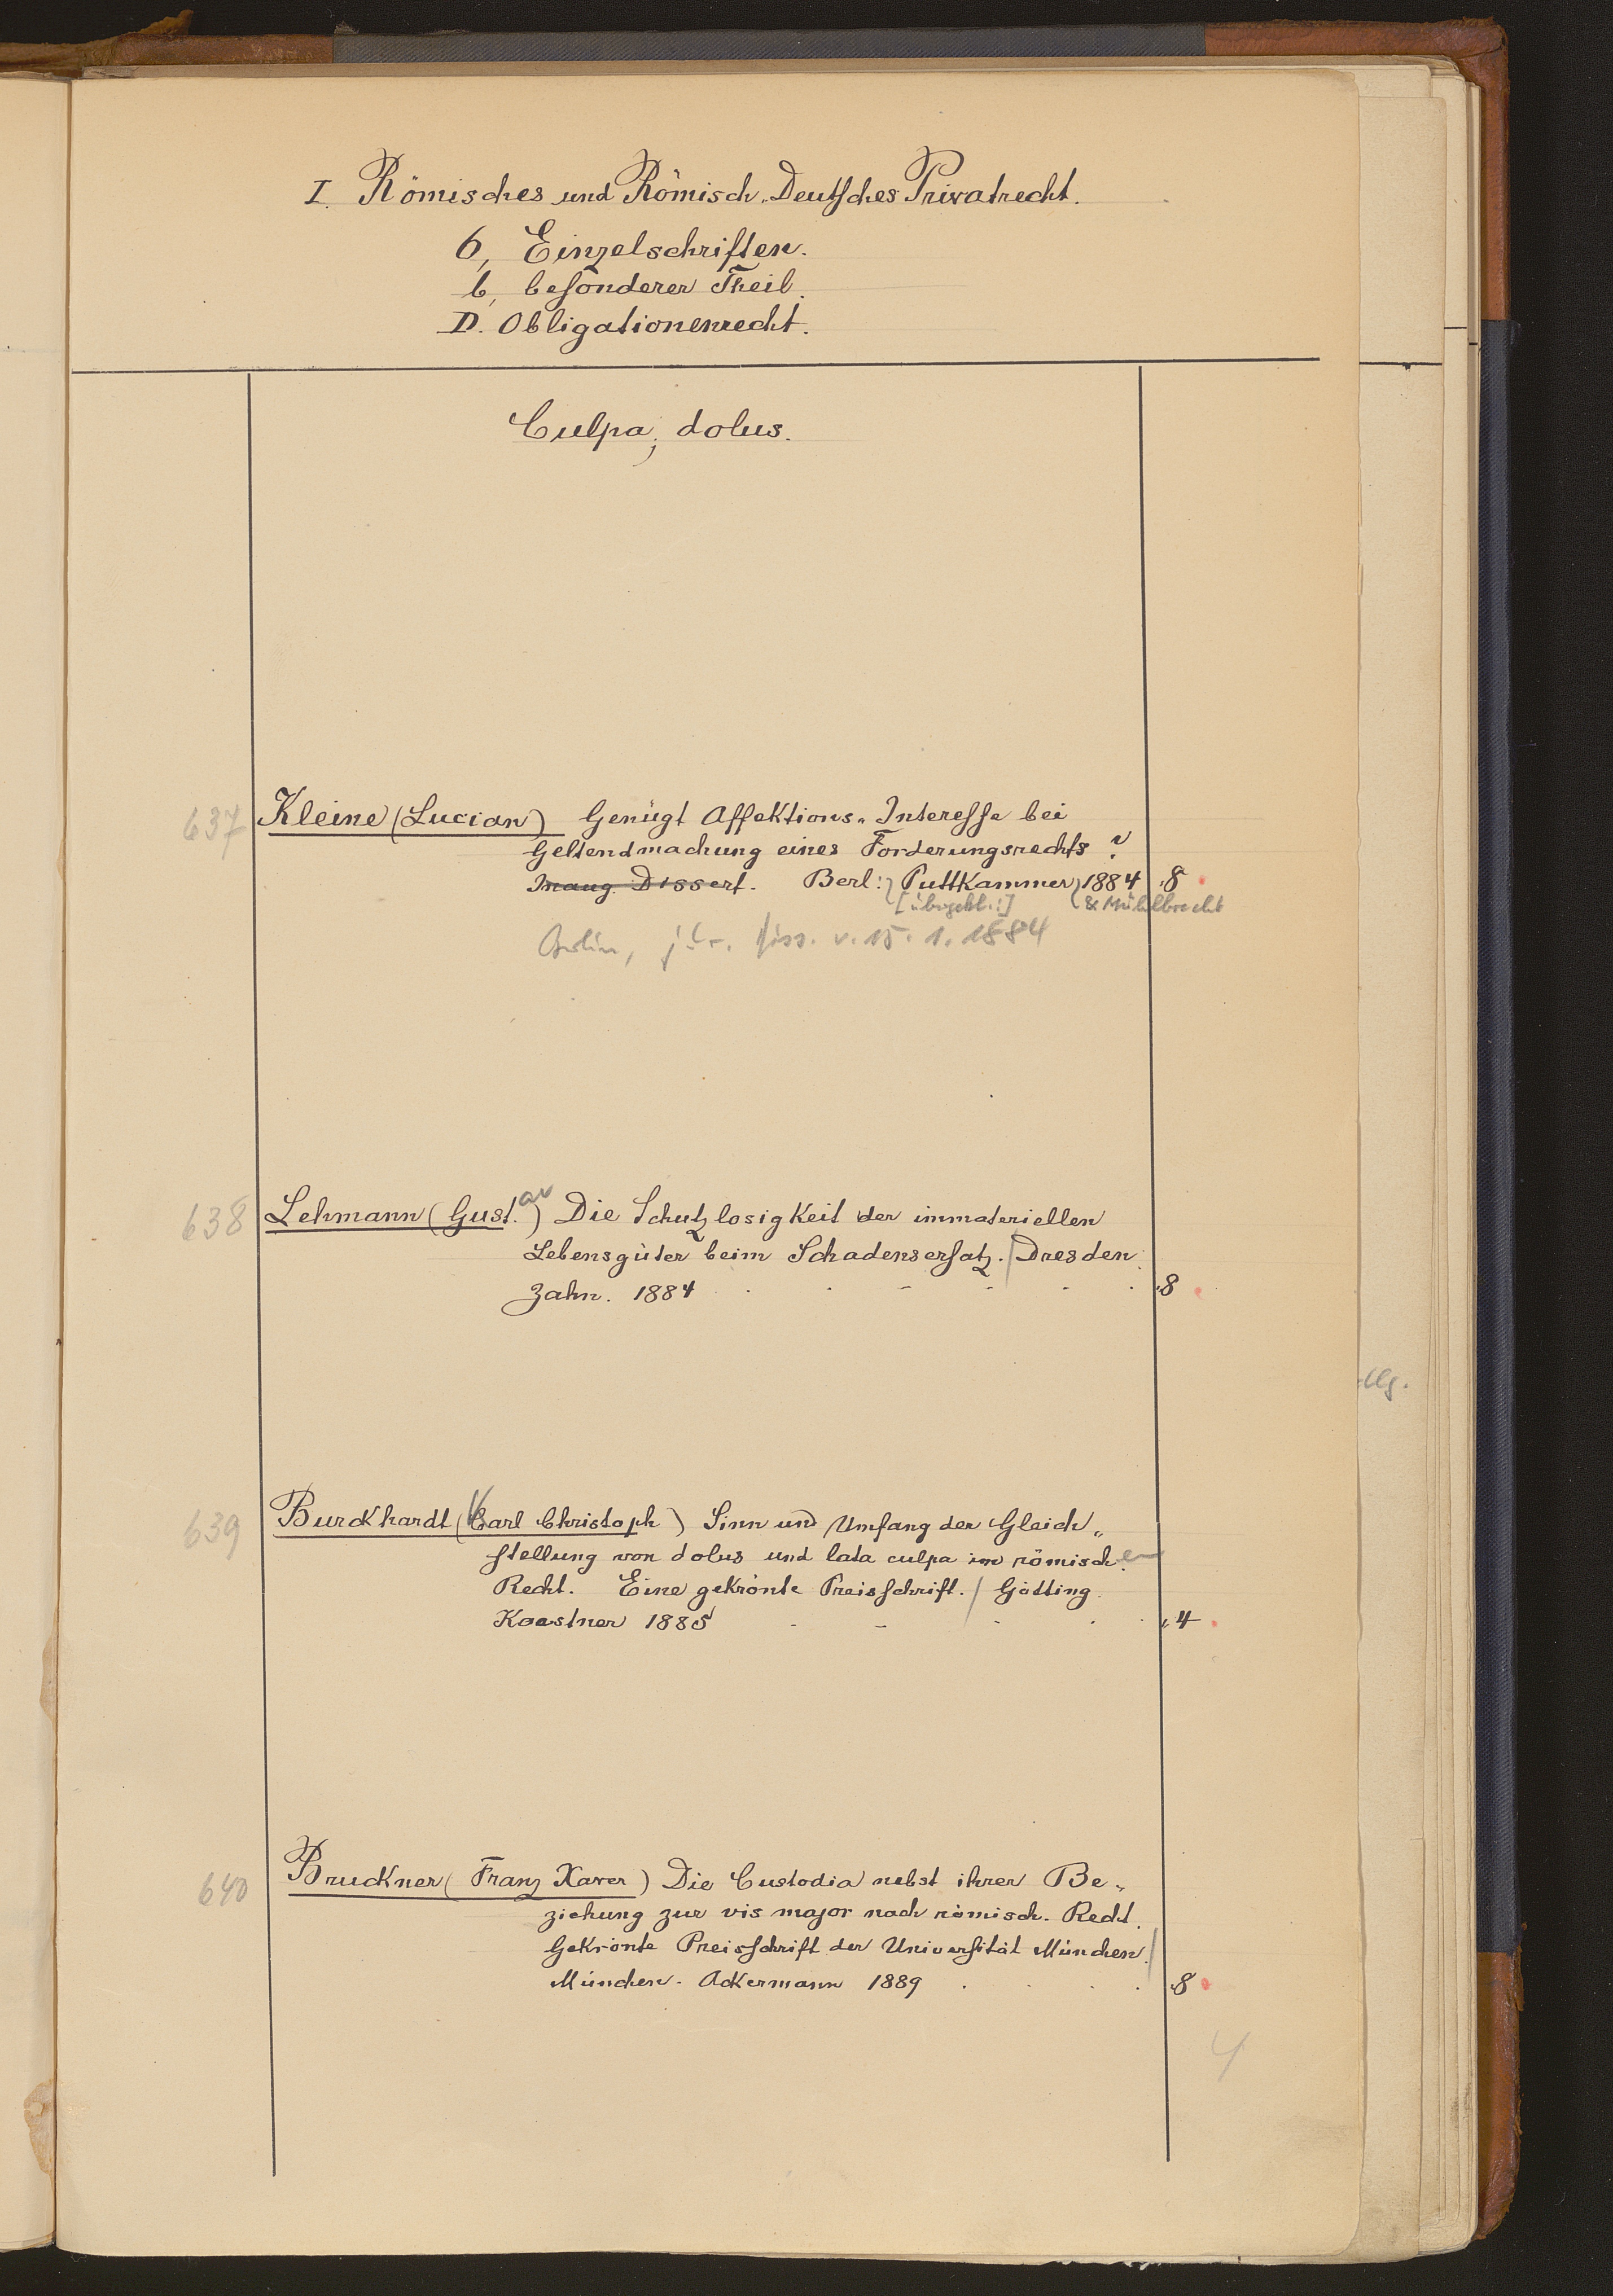 I. Römisches und Römisch-Deutsches Privatrecht.
6, Einzelschriften.
b, besonderer Theil.
D. Obligationenrecht.
Culpa; dolus.
637 Kleine (Lucian) Genügt Affektions-Interesse bei
Geltendmachung eines Forderungsrechts?
Inaug. Dissert. Berl: Puttkammer 1884 8
& Mühlbrecht
Berlin, jur. Diss. v. 15. 1. 1884
638 Lehmann (Gust.av) Die Schutzlosigkeit der immateriellen
Lebensgüter beim Schadensersatz. / Dresden.
Zahn. 1884 8
639 Burckhardt (Carl Christoph) Sinn und Umfang der Gleich-
stellung von dolus und lata culpa im römischen
Recht. Eine gekrönte Preisschrift. / Götting.
Kaestner 1885 4
640 Bruckner (Franz Xaver) Die Custodia nebst ihrer Be-
ziehung zur vis major nach römisch. Recht.
Gekrönte Preisschrift der Universität München. /
München. Ackermann 1889 8
4